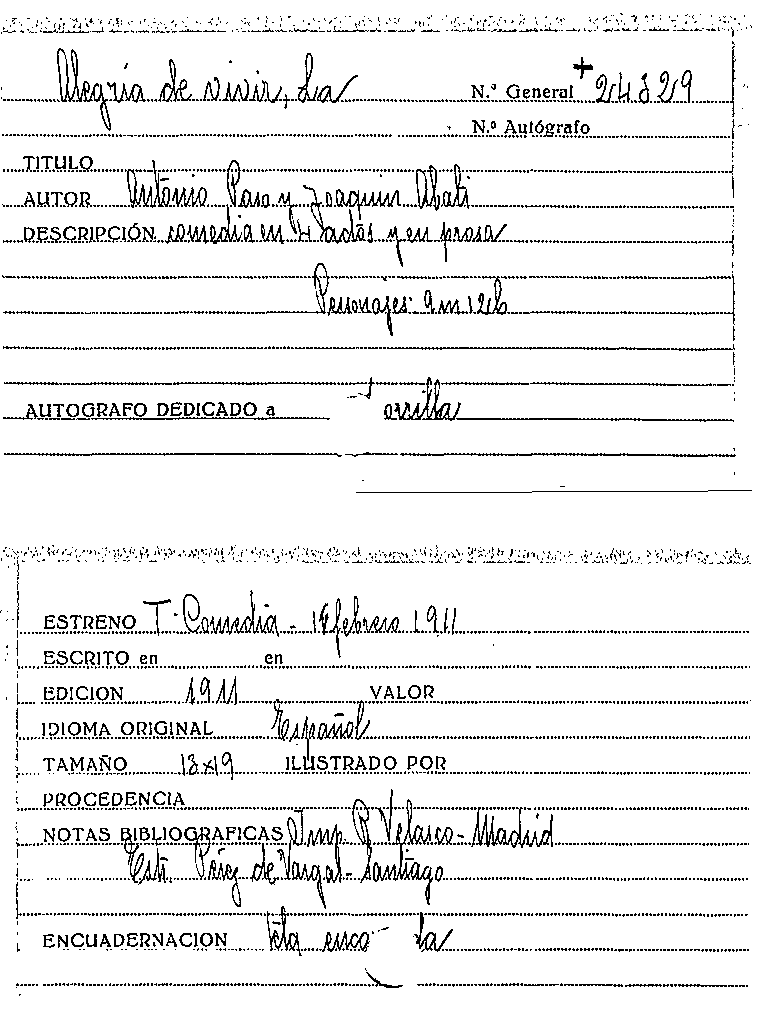 Alegría de vivir, La N.º General + 24329
N.º Autógrafo
TITULO
AUTOR Antonio Paso y Joaquin Abati
DESCRIPCIÓN comedia en actos y en prosa
Personajes: 9 m 12 h
AUTOGRAFO DEDICADO a
ESTRENO T. Comedia - febrero 1911
ESCRITO en en
EDICION 1911 VALOR
IDIOMA ORIGINAL Español
TAMAÑO 13x19 ILUSTRADO POR
PROCEDENCIA
NOTAS BIBLIOGRAFICAS Imp. R Velasco - Madrid
Estr. Pérez de Vargas - Santiago
ENCUADERNACION tela